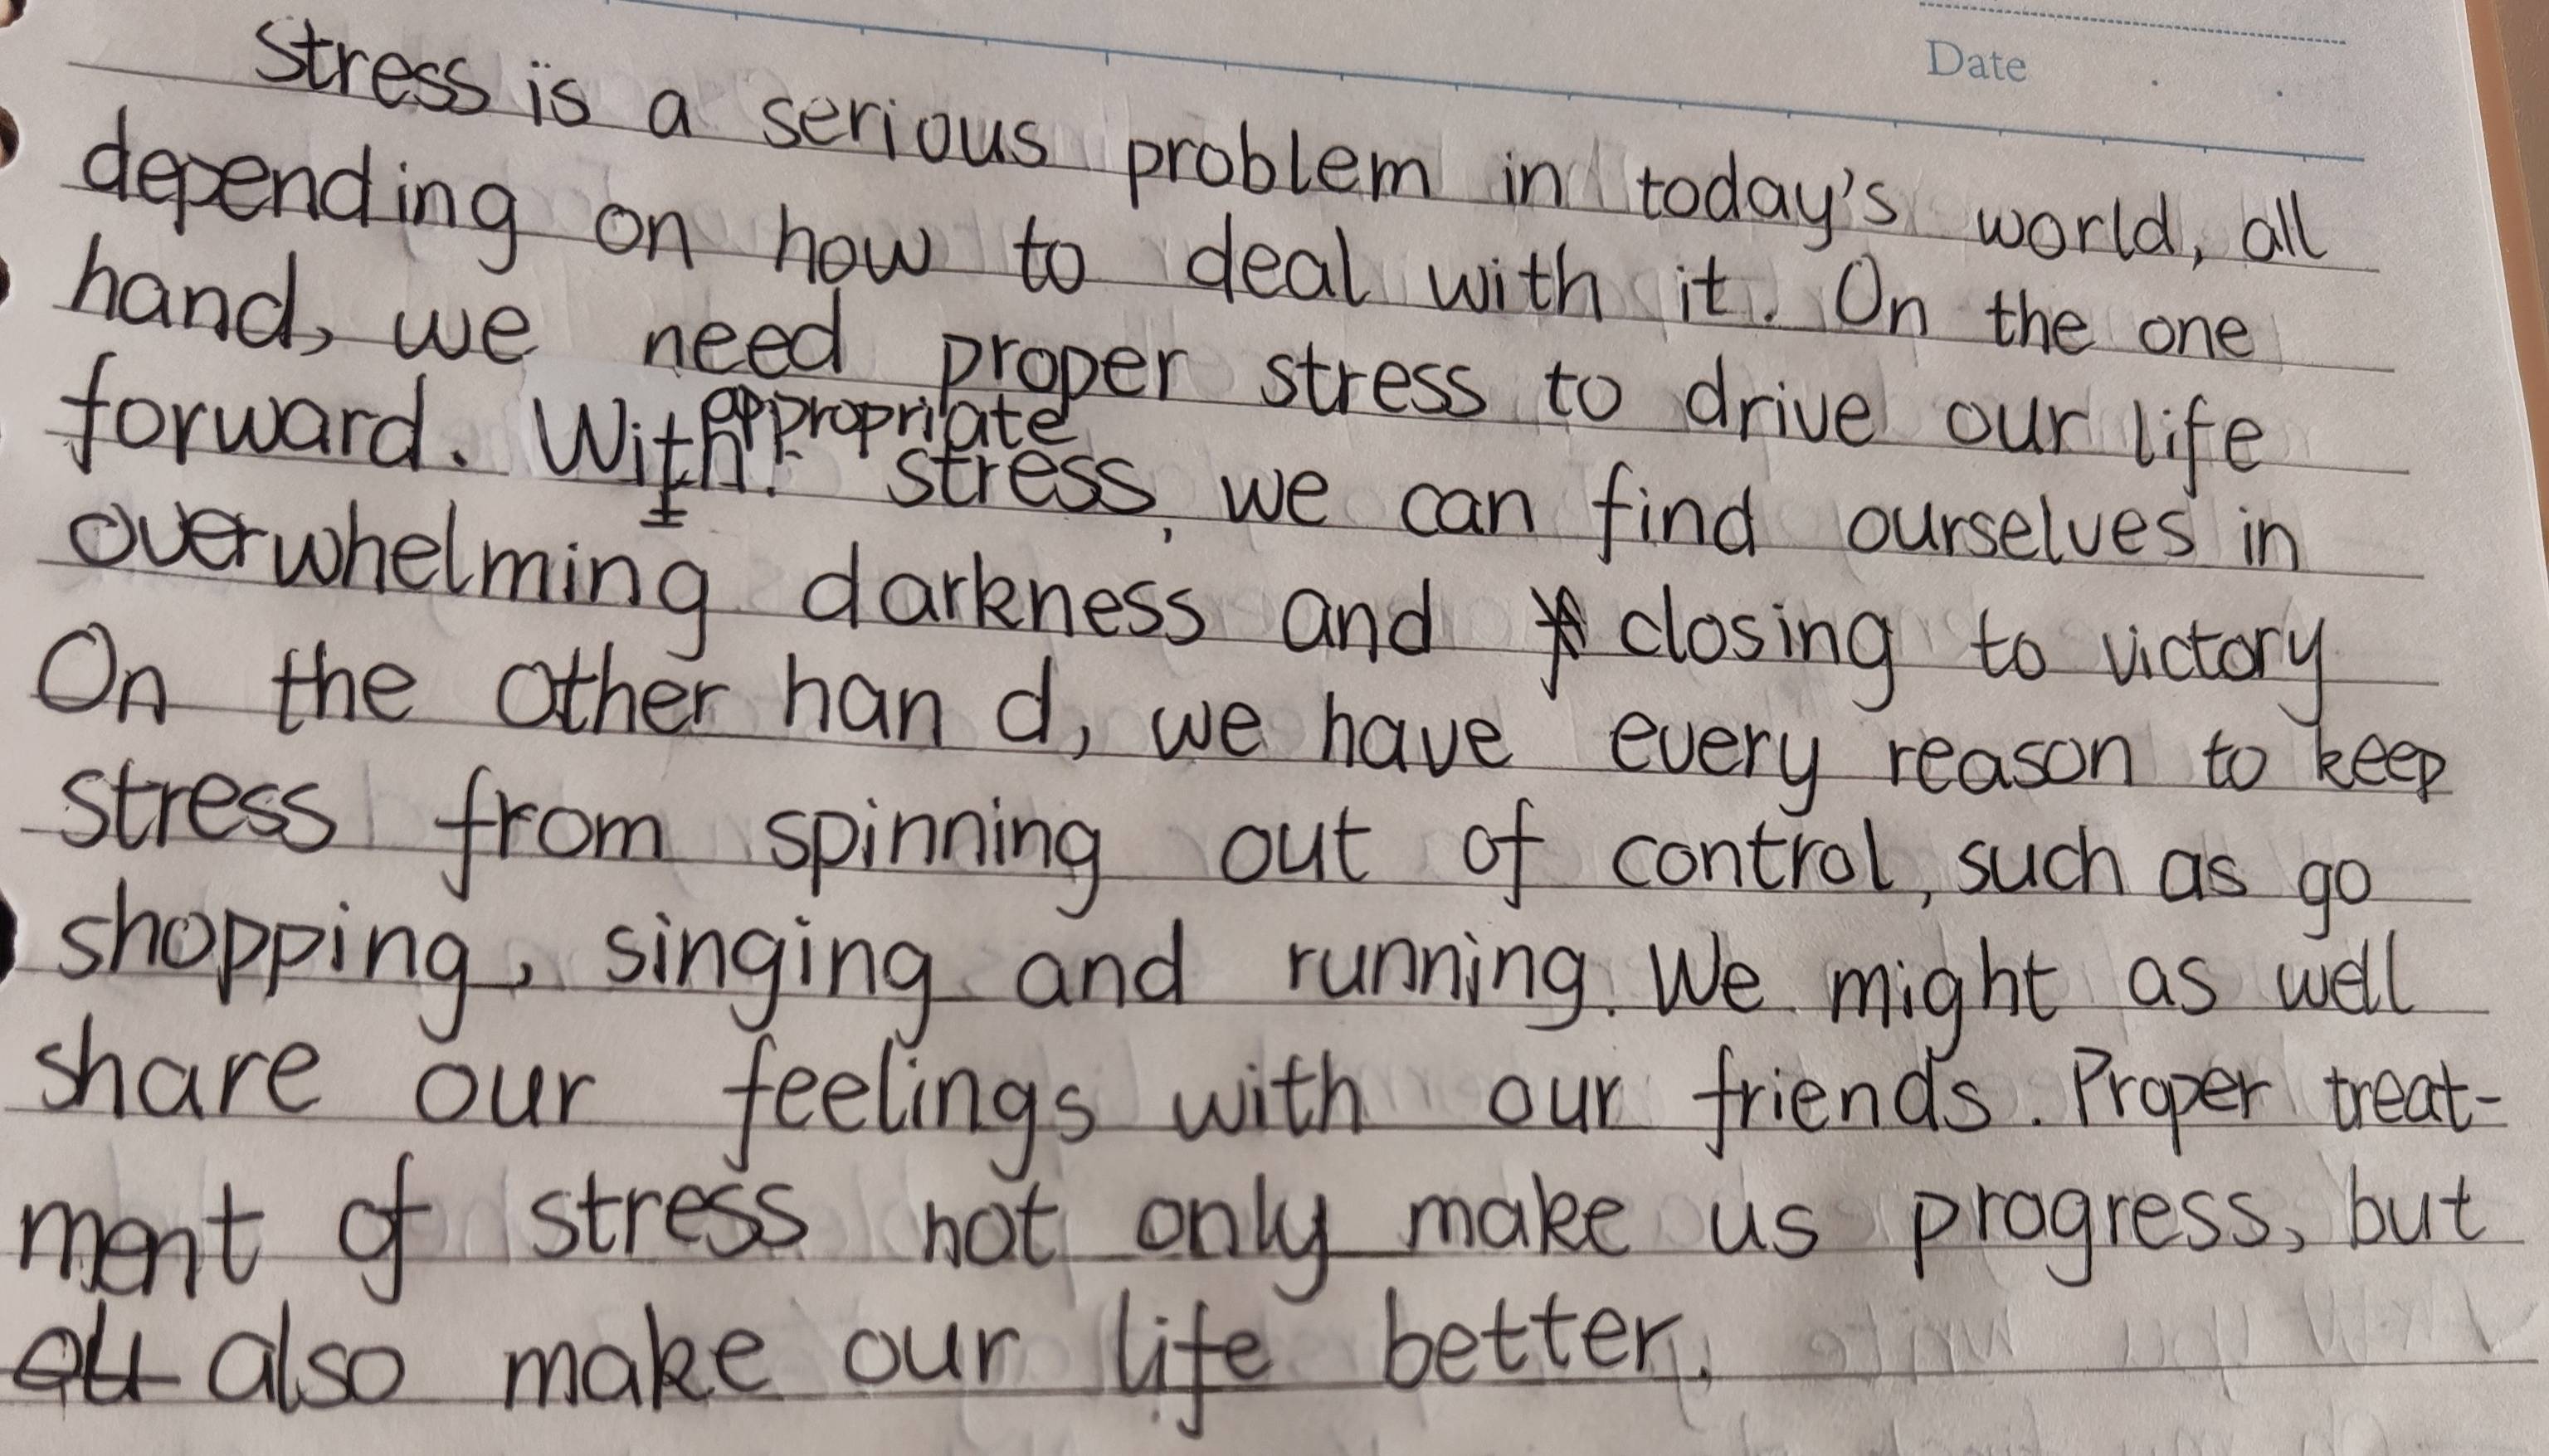 Date
Stress is a serious problem in today's world, all
depending on how to deal with it. On the one
hand, we need proper stress to drive our life
forward. With appropriate stress, we can find ourselves in
overwhelming darkness and closing to victory
On the other hand, we have every reason to keep
stress from spinning out of control, such as go
shopping, singing and running. We might as well
share our feelings with our friends. Proper treat-
ment of stress not only make us progress, but
also make our life better.